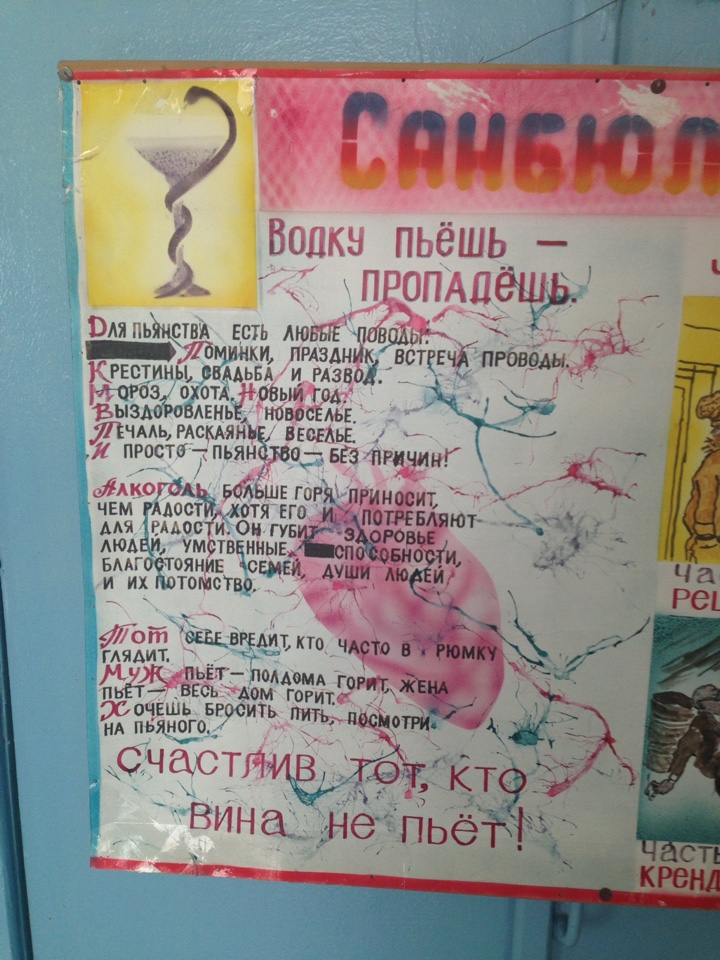 САНБЮЛ
ВОДКУ ПЬЁШЬ —
ПРОПАДЁШЬ.
ДЛЯ ПЬЯНСТВА ЕСТЬ ЛЮБЫЕ ПОВОДЫ:
ПОМИНКИ, ПРАЗДНИК, ВСТРЕЧА ПРОВОДЫ.
КРЕСТИНЫ, СВАДЬБА И РАЗВОД.
МОРОЗ, ОХОТА. НОВЫЙ ГОД.
ВЫЗДОРОВЛЕНЬЕ, НОВОСЕЛЬЕ.
ПЕЧАЛЬ, РАСКАЯНЬЕ, ВЕСЕЛЬЕ.
И ПРОСТО — ПЬЯНСТВО — БЕЗ ПРИЧИН!
АЛКОГОЛЬ БОЛЬШЕ ГОРЯ ПРИНОСИТ,
ЧЕМ РАДОСТИ, ХОТЯ ЕГО И ПОТРЕБЛЯЮТ
ДЛЯ РАДОСТИ. ОН ГУБИТ ЗДОРОВЬЕ
ЛЮДЕЙ, УМСТВЕННЫЕ СПОСОБНОСТИ,
БЛАГОСТОЯНИЕ СЕМЕЙ, ДУШИ ЛЮДЕЙ
И ИХ ПОТОМСТВО.
ТОТ СЕБЕ ВРЕДИТ, КТО ЧАСТО В РЮМКУ
ГЛЯДИТ.
МУЖ ПЬЁТ — ПОЛДОМА ГОРИТ, ЖЕНА
ПЬЁТ — ВЕСЬ ДОМ ГОРИТ.
ХОЧЕШЬ БРОСИТЬ ПИТЬ, ПОСМОТРИ
НА ПЬЯНОГО.
СЧАСТЛИВ ТОТ, КТО
ВИНА НЕ ПЬЁТ!
ЧА
РЕЦ
ЧАСТЬ
КРЕНД